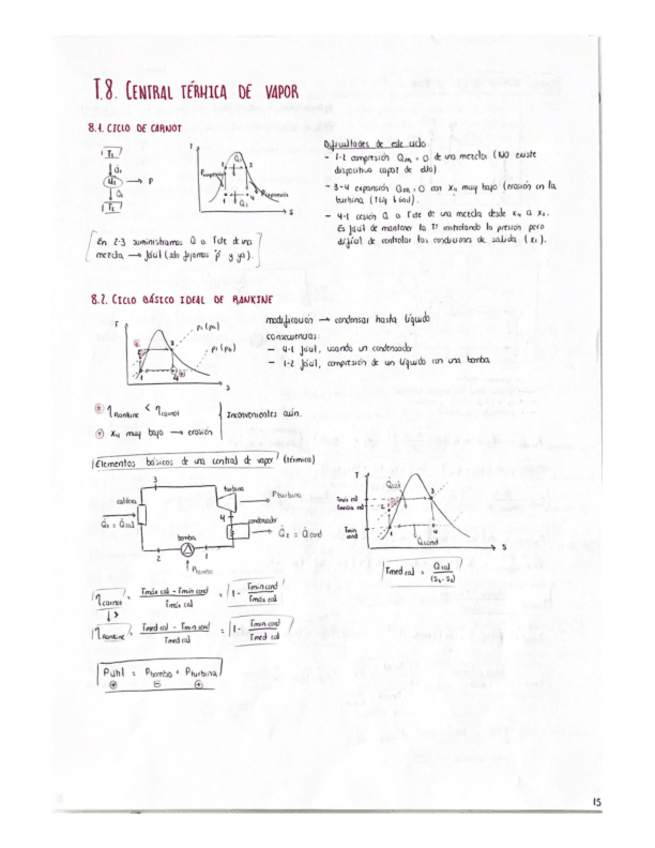 T.8. CENTRAL TÉRMICA DE VAPOR
8.1. CICLO DE CARNOT
T1
Q1
→ P
Q2
T2
T
2
3
1
4
S
Dificultades de este ciclo
- 1-2 compresión de una mezcla (NO existe
dispositivo capaz de ello)
- 3-4 expansión con x4 muy bajo (erosión en la
turbina
- 4-1 cesión Q a Tcte de una mezcla desde x4 a x1.
Es fácil de mantener la Tª controlando la presión pero
difícil de controlar las condiciones de salida (x1).
En 2-3 suministramos Q a Tcte de una
mezcla → fácil (solo fijamos p y ya).
8.2. CICLO BÁSICO IDEAL DE RANKINE
T
3
1
4
S
modificación → condensar hasta líquido
consecuencias:
- 4-1 fácil, usando un condensador
- 1-2 fácil, compresión de un líquido con una bomba
η Rankine < η carnot
x4 muy bajo → erosión
Inconvenientes aún.
Elementos básicos de una central de vapor (térmica)
3
turbina
caldera
Pturbina
4
condensador
Q̇1 = Q̇cal
Q̇2 = Q̇cond
bomba
2
1
Pbomba
T
Q̇cal
Tmáx cal
Tmedia cal
Tmin
cond
3
1
Q̇cond
S
η carnot = Tmáx cal - Tmin cond / Tmáx cal = 1 - Tmin cond / Tmáx cal
η Rankine = Tmed cal - Tmin cond / Tmed cal = 1 - Tmin cond / Tmed cal
Pútil = Pbomba + Pturbina
⊕ ⊖ ⊕
15